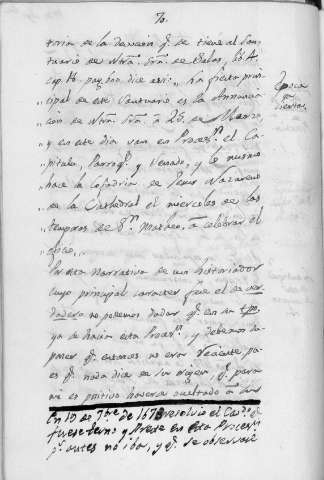 70.
toria de la devocion q.e se tiene al San-
tuario de Ntrâ. Srâ. de Salas, lib. 4.
cap. 16. pag. dice asi: La fiesta prin-
„cipal de este Santuario es la Anuncia
„cion de Ntrâ. Srâ. â 25 de Marzo,
„y en este dia van en Proces.n el Ca-
„pitulo, Parroq.s y Senado, y lo mismo
„hace la Cofadria de Jesus Nazareno
„de la Cathedral el miercoles de las
„temporas de S.n Matheo, â celebrar el
„goce.
Epoca
Por esta Narrativa de un historiador
cuyo principal caracter fue el de ver
dadero no podemos dudar q.e en su tpo
ya se hacia esta Proces.n, y debemos su-
poner q.e entonces no era reciente, pu-
es q.e nada dice de su origen, q.e para
mi es positivo haverse ocultado â sus
En 19 de 7.bre de 1678 resolvio el Cav.o q.e
fuese terno y Preste en esta Proces.n
p.r antes no iba, y q.e se observase